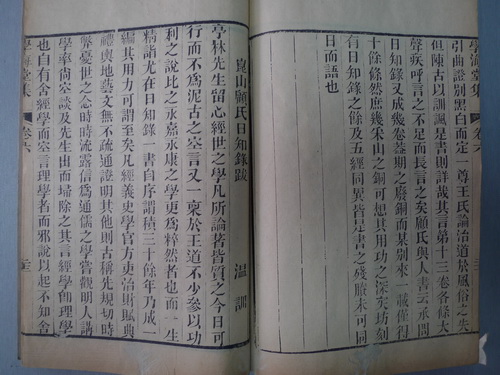 學海堂集
卷六
引曲證別黑白而定一尊王氏論治道於風俗之失
但陳古以訓諷是書則詳哉其言第十三卷各條大
聲疾呼言之不足而長言之矣顧氏與人書云承問
日知錄又成幾卷蓋期之廢銅而某別來一載僅得
十餘條然庶幾采山之銅可想其用功之深矣坊刻
有日知錄之餘及五經同異皆是書之殘賸未可同
日而語也
崑山顧氏日知錄跋
溫訓
亭林先生留心經世之學凡所論著皆質之今日可
行而不為泥古之空言又一稟於王道不少參以功
利之說比之永嘉永康之學更為粹然者也而一生
精力尤在日知錄一書自序謂積三十餘年乃成一
編其用力可謂至矣凡經義史學官方吏治財賦典
禮輿地藝文無不疏通證明其他則古稱先規切時
弊憂世之念時時流露信為通儒之學嘗觀明人講
學率尚空談及先生出而埽除之其言經學卽理學
也自有舍經學而空言理學者而邪說以起不知舍
學海堂集
卷六